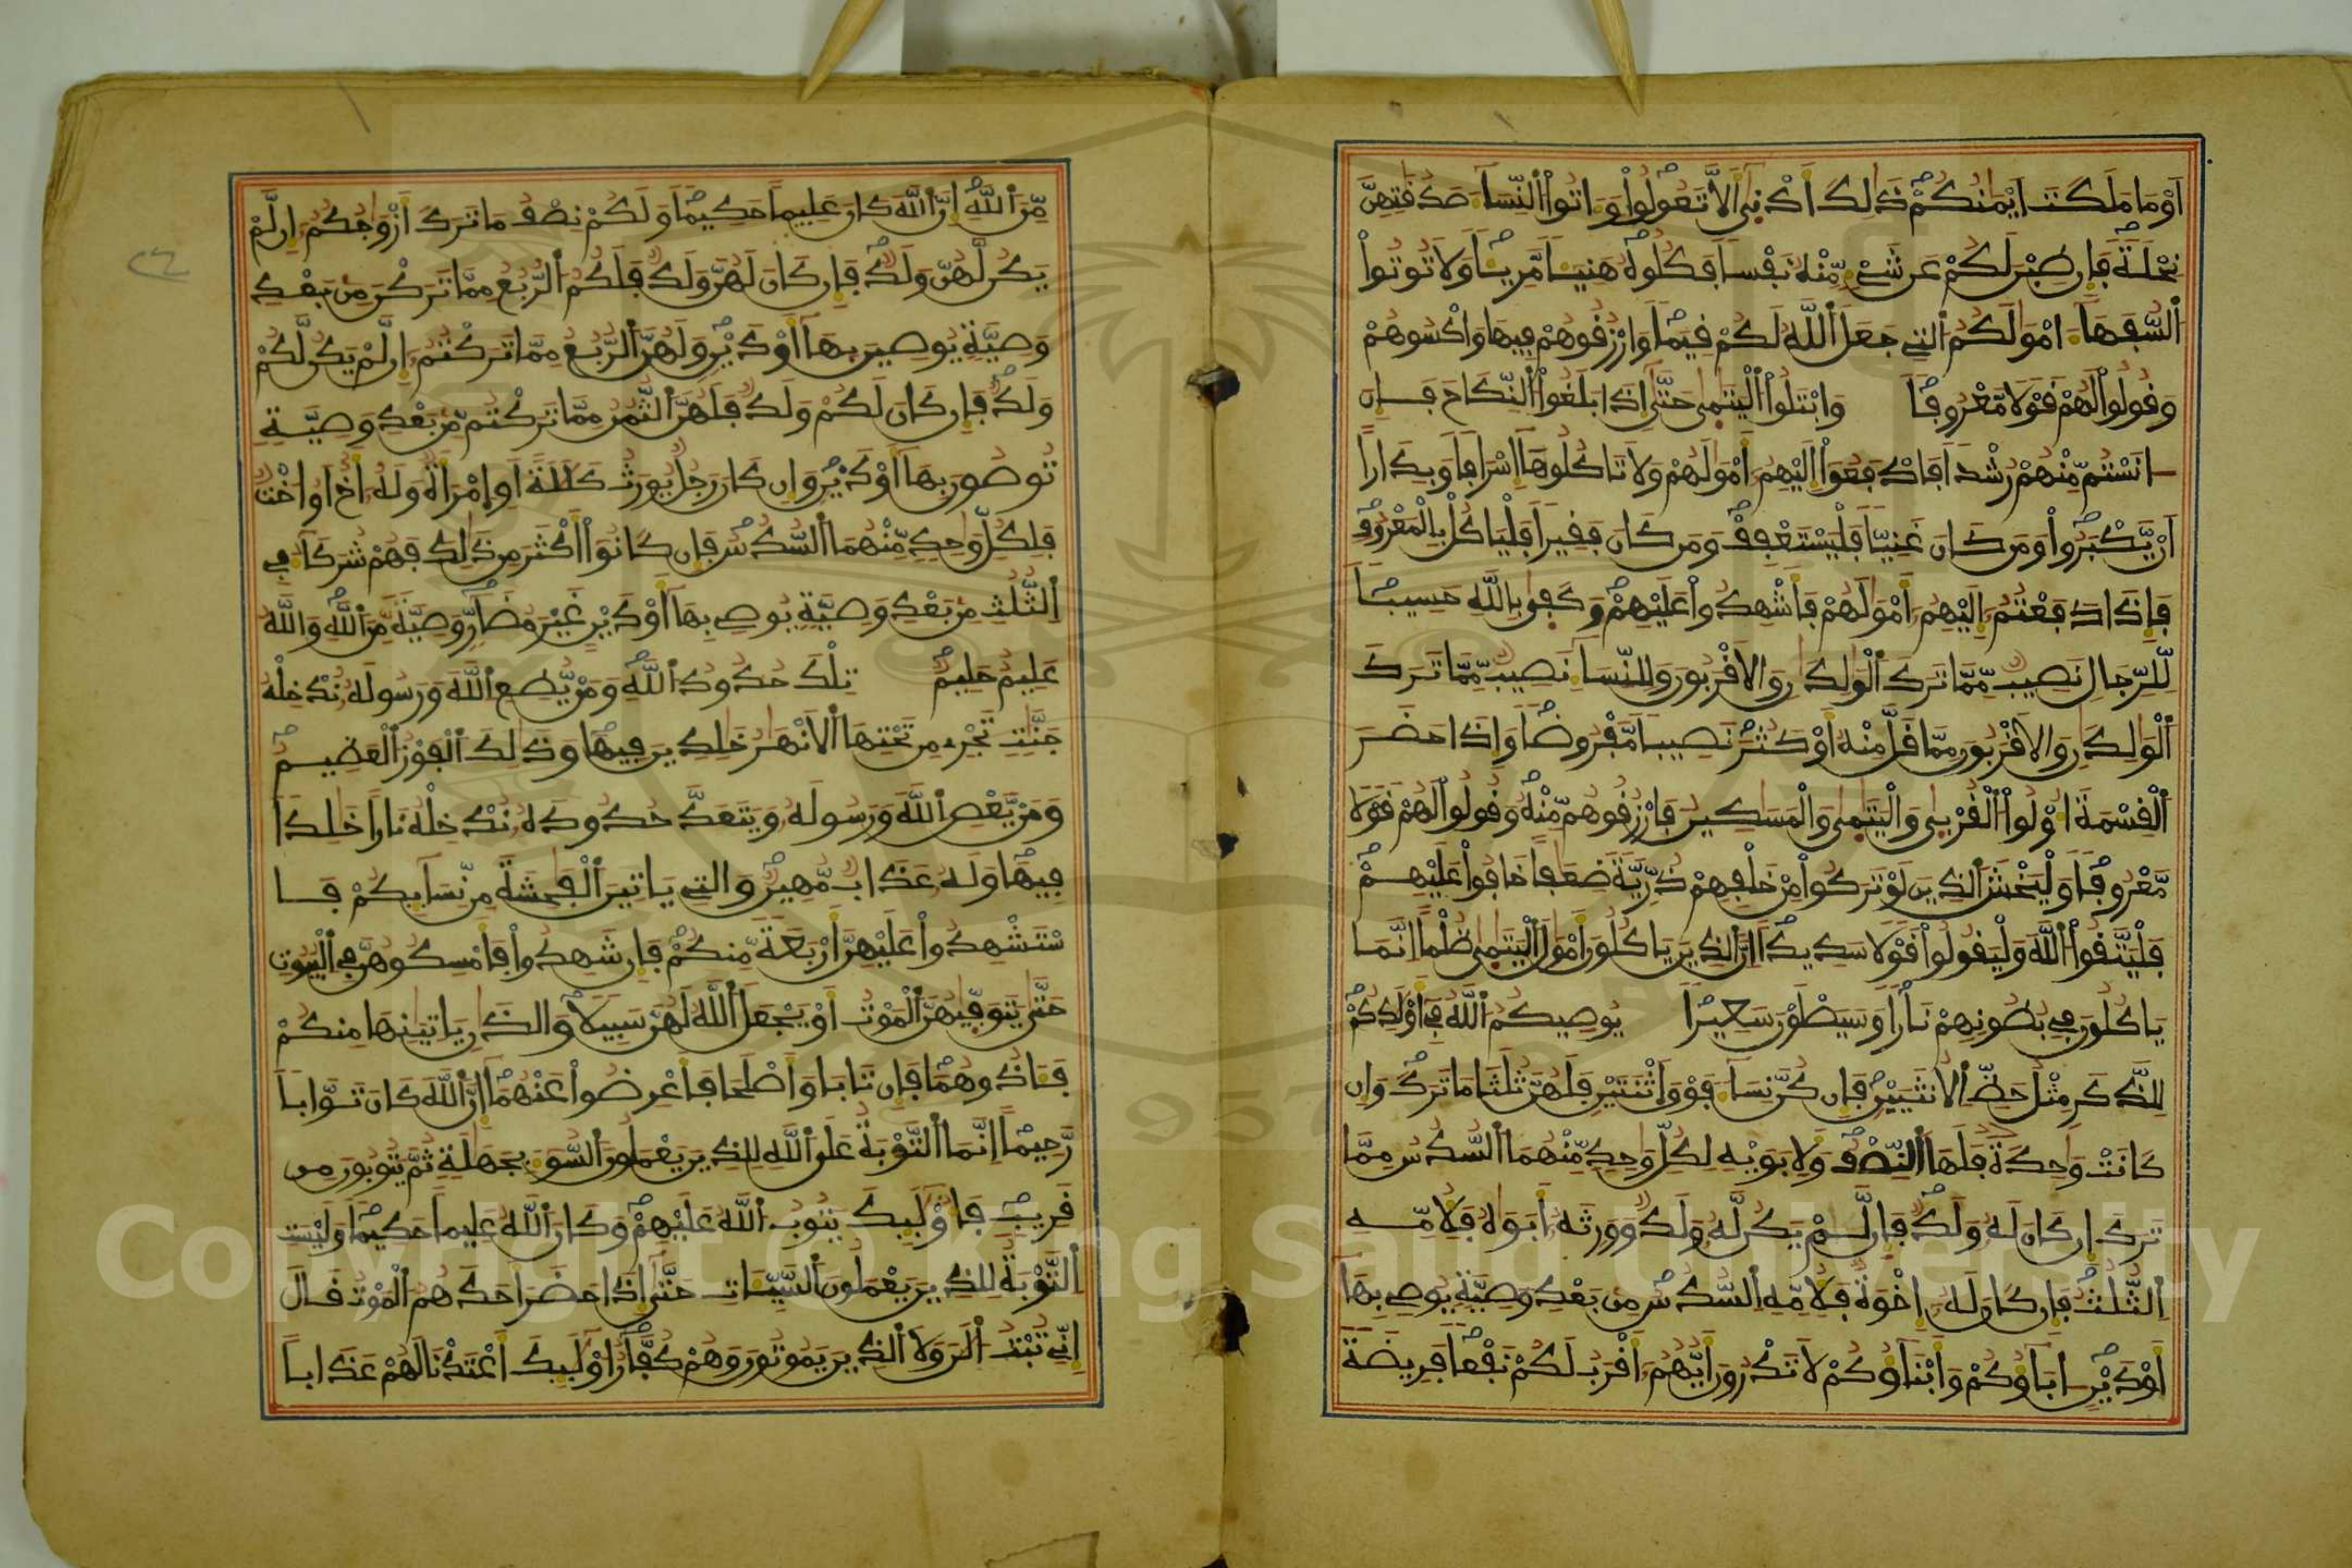 اَوْ مَا مَلَكَتَ اَيْمَٰنُكُمْ ذَٰلِكَ أَدْنَىٰ أَلاَّ تَعُولُواْ وَءَاتُواْ اُ۬لنِّسَآءَ صَدُقَٰتِهِنَّ
نِحْلَةٗ فَإِن طِبْنَ لَكُمْ عَن شَےْءٖ مِّنْهُ نَفْساٗ فَكُلُوهُ هَنِيٓـٔاٗ مَّرِيٓـٔاٗ وَلاَ تُوتُواْ
اُ۬لسُّفَهَآءَ امْوَٰلَكُمُ اُ۬لتِے جَعَلَ اَ۬للَّهُ لَكُمْ قِيَماٗ وَارْزُقُوهُمْ فِيهَا وَاكْسُوهُمْ
وَقُولُواْ لَهُمْ قَوْلاٗ مَّعْرُوفاٗ وَابْتَلُواْ اُ۬لْيَتَٰمَىٰ حَتَّىٰ إِذَا بَلَغُواْ اُ۬لنِّكَاحَ فَإِنَ
ـ اٰنَسْتُم مِّنْهُمْ رُشْداٗ فَادْفَعُوٓاْ إِلَيْهِمُۥٓ أَمْوَٰلَهُمْ وَلاَ تَاكُلُوهَآ إِسْرَافاٗ وَبِدَاراً
اَنْ يَّكْبَرُواْ وَمَن كَانَ غَنِيّاٗ فَلْيَسْتَعْفِفْ وَمَن كَانَ فَقِيراٗ فَلْيَاكُلْ بِالْمَعْرُوفِ
فَإِذَا دَفَعْتُمُۥٓ إِلَيْهِمُۥٓ أَمْوَٰلَهُمْ فَأَشْهِدُواْ عَلَيْهِمْ وَكَفَىٰ بِاللَّهِ حَسِيباٗ
لِّلرِّجَالِ نَصِيبٞ مِّمَّا تَرَكَ اَ۬لْوَٰلِدَٰنِ وَالاَقْرَبُونَ وَلِلنِّسَآءِ نَصِيبٞ مِّمَّا تَرَكَ
اَ۬لْوَٰلِدَٰنِ وَالاَقْرَبُونَ مِمَّا قَلَّ مِنْهُ أَوْ كَثُرَ نَصِيباٗ مَّفْرُوضاٗ وَإِذَا حَضَرَ
اَ۬لْقِسْمَةَ أُوْلُواْ اُ۬لْقُرْبَىٰ وَالْيَتَٰمَىٰ وَالْمَسَٰكِينُ فَارْزُقُوهُم مِّنْهُ وَقُولُواْ لَهُمْ قَوْلاٗ
مَّعْرُوفاٗ وَلْيَخْشَ اَ۬لذِينَ لَوْ تَرَكُواْ مِنْ خَلْفِهِمْ ذُرِّيَّةٗ ضِعَٰفاً خَافُواْ عَلَيْهِمْ
فَلْيَتَّقُواْ اُ۬للَّهَ وَلْيَقُولُواْ قَوْلاٗ سَدِيداً اِنَّ اَ۬لذِينَ يَاكُلُونَ أَمْوَٰلَ اَ۬لْيَتَٰمَىٰ ظُلْماً اِنَّمَا
يَاكُلُونَ فِے بُطُونِهِمْ نَاراٗ وَسَيَصْلَوْنَ سَعِيراٗ يُوصِيكُمُ اُ۬للَّهُ فِےٓ أَوْلَٰدِكُمْ
لِلذَّكَرِ مِثْلُ حَظِّ اِ۬لاُنثَيَيْنِ فَإِن كُنَّ نِسَآءٗ فَوْقَ اَثْنَتَيْنِ فَلَهُنَّ ثُلُثَا مَا تَرَكَ وَإِن
كَانَتْ وَٰحِدَةٞ فَلَهَا اَ۬لنِّصْفُ وَلِأَبَوَيْهِ لِكُلِّ وَٰحِدٖ مِّنْهُمَا اَ۬لسُّدُسُ مِمَّا
تَرَكَ إِن كَانَ لَهُۥ وَلَدٞ فَإِن لَّمْ يَكُن لَّهُۥ وَلَدٞ وَوَرِثَهُۥٓ أَبَوَٰهُ فَلِأُمِّهِ
اِ۬لثُّلُثُ فَإِن كَانَ لَهُۥٓ إِخْوَةٞ فَلِأُمِّهِ اِ۬لسُّدُسُ مِنۢ بَعْدِ وَصِيَّةٖ يُوصِے بِهَآ
أَوْ دَيْنٍ اٰبَآؤُكُمْ وَأَبْنَآؤُكُمْ لاَ تَدْرُونَ أَيُّهُمُۥٓ أَقْرَبُ لَكُمْ نَفْعاٗ فَرِيضَةٗ
مِّنَ اَ۬للَّهِ إِنَّ اَ۬للَّهَ كَانَ عَلِيماً حَكِيماٗ وَلَكُمْ نِصْفُ مَا تَرَكَ أَزْوَٰجُكُمُۥٓ إِن لَّمْ
يَكُن لَّهُنَّ وَلَدٞ فَإِن كَانَ لَهُنَّ وَلَدٞ فَلَكُمُ اُ۬لرُّبُعُ مِمَّا تَرَكْنَ مِنۢ بَعْدِ
وَصِيَّةٖ يُوصِينَ بِهَآ أَوْ دَيْنٖ وَلَهُنَّ اَ۬لرُّبُعُ مِمَّا تَرَكْتُمُۥٓ إِن لَّمْ يَكُن لَّكُمْ
وَلَدٞ فَإِن كَانَ لَكُمْ وَلَدٞ فَلَهُنَّ اَ۬لثُّمُنُ مِمَّا تَرَكْتُم مِّنۢ بَعْدِ وَصِيَّةٖ
تُوصُونَ بِهَآ أَوْ دَيْنٖ وَإِن كَانَ رَجُلٞ يُورَثُ كَلَٰلَةً اَوِ اِمْرَأَةٞ وَلَهُۥٓ أَخٌ اَوُ اخْتٞ
فَلِكُلِّ وَٰحِدٖ مِّنْهُمَا اَ۬لسُّدُسُ فَإِن كَانُوٓاْ أَكْثَرَ مِن ذَٰلِكَ فَهُمْ شُرَكَآءُ فِے
اِ۬لثُّلُثِ مِنۢ بَعْدِ وَصِيَّةٖ يُوصِے بِهَآ أَوْ دَيْنٍ غَيْرَ مُضَآرّٖ وَصِيَّةٗ مِّنَ اَ۬للَّهِ وَاللَّهُ
عَلِيمٌ حَلِيمٞ تِلْكَ حُدُودُ اُ۬للَّهِ وَمَنْ يُّطِعِ اِ۬للَّهَ وَرَسُولَهُۥ نُدْخِلْهُ
جَنَّٰتٖ تَجْرِے مِن تَحْتِهَا اَ۬لاَنْهَٰرُ خَٰلِدِينَ فِيهَا وَذَٰلِكَ اَ۬لْفَوْزُ اُ۬لْعَظِيمُ
وَمَنْ يَّعْصِ اِ۬للَّهَ وَرَسُولَهُۥ وَيَتَعَدَّ حُدُودَهُۥ نُدْخِلْهُ نَاراً خَٰلِداٗ
فِيهَا وَلَهُۥ عَذَابٞ مُّهِينٞ وَالتِے يَاتِينَ اَ۬لْفَٰحِشَةَ مِن نِّسَآئِكُمْ فَا
سْتَشْهِدُواْ عَلَيْهِنَّ أَرْبَعَةٗ مِّنكُمْ فَإِن شَهِدُواْ فَأَمْسِكُوهُنَّ فِے اِ۬لْبُيُوتِ
حَتَّىٰ يَتَوَفّٰيهُنَّ اَ۬لْمَوْتُ أَوْ يَجْعَلَ اَ۬للَّهُ لَهُنَّ سَبِيلاٗ وَالذَٰنِ يَاتِيَٰنِهَا مِنكُمْ
فَـَٔاذُوهُمَا فَإِن تَابَا وَأَصْلَحَا فَأَعْرِضُواْ عَنْهُمَآ إِنَّ اَ۬للَّهَ كَانَ تَوَّاباٗ
رَّحِيماً اِنَّمَا اَ۬لتَّوْبَةُ عَلَى اَ۬للَّهِ لِلذِينَ يَعْمَلُونَ اَ۬لسُّوٓءَ بِجَهَٰلَةٖ ثُمَّ يَتُوبُونَ مِن
قَرِيبٖ فَأُوْلَٰٓئِكَ يَتُوبُ اُ۬للَّهُ عَلَيْهِمْ وَكَانَ اَ۬للَّهُ عَلِيماً حَكِيماٗ وَلَيْسَتِ
اِ۬لتَّوْبَةُ لِلذِينَ يَعْمَلُونَ اَ۬لسَّيِّـَٔاتِ حَتَّىٰٓ إِذَا حَضَرَ أَحَدَهُمُ اُ۬لْمَوْتُ قَالَ
إِنِّے تُبْتُ اُ۬لَٰنَ وَلاَ اَ۬لذِينَ يَمُوتُونَ وَهُمْ كُفَّارٌ اُوْلَٰٓئِكَ أَعْتَدْنَا لَهُمْ عَذَاباً
Copyright © King Saud University
1957